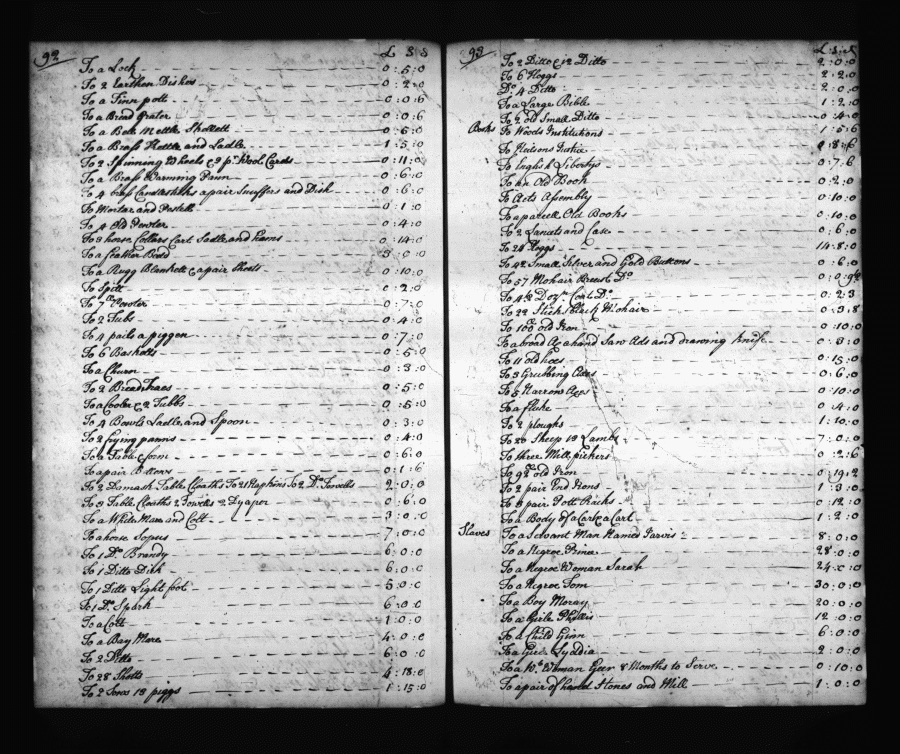 92
£ S S
To a Lock 0:5:0
To 2 Earthen Dishes 0:2:0
To a Tinn pott 0:0:6
To a Bread Grater 0:0:6
To a Bell Mettle Skellett 0:6:0
To a Brass Kettle and Ladle 1:5:0
To 2 Spinning Wheels & 3 pr. Wool Cards 0:11:0
To a Brass Warming Pann 0:6:0
To 4 brass Candlesticks a pair Snuffers and Dish 0:6:0
To Mortar and Pestell 0:1:0
To 4 Old Pewter 0:4:0
To 3 horse Collars Cart Sadle and Hems 0:14:0
To a feather Bed 3:0:0
To a Rugg Blankett & a pair Sheets 0:10:0
To Spitt 0:2:0
To 7 Pewter 0:7:0
To 2 Tubs 0:4:0
To 4 pails a piggen 0:7:0
To 6 Basketts 0:5:0
To a Churn 0:3:0
To 2 Bread Traes 0:5:0
To a Cooler & 2 Tubbs 0:5:0
To 4 Bowls Ladle and Spoon 0:3:0
To 2 frying panns 0:4:0
To a Table & form 0:6:0
To a pair 0:1:6
To 2 Damask Table Cloaths To 21 Napkins To 2 Do. Towells 2:0:0
To 3 Table Cloaths 2 Towells 2 Dyaper 0:6:0
To a White Mare and Colt 3:0:0
To a horse 7:0:0
To 1 Do. Brandy 6:0:0
To 1 Ditto Dick 6:0:0
To 1 Ditto Light foot 5:0:0
To 1 Do. Spark 6:0:0
To a Colt 1:0:0
To a Bay Mare 4:0:0
To 2 Ditto 6:0:0
To 28 Shotts 4:13:0
To 2 Sows 18 piggs 1:15:0
93
£ : S : d
To 2 Ditto & 12 Ditto 2:0:0
To 6 Hoggs 2:2:0
Do. 4 Ditto 2:0:0
To a Large Bible 1:2:0
To 2 old Small Ditto 0:4:0
Books To Woods Institutions 1:5:6
To Nelsons Justice 0:8:6
To English Libertys 0:7:6
To an Old Book 0:2:0
To Acts Assembly 0:10:0
To a parcell Old Books 0:10:0
To 2 Lancets and Case 0:6:0
To 24 Hoggs 14:8:0
To 42 Small Silver and Gold Buttons 0:6:0
To 57 Mohair Breast Do.
To 4½ Dozn. Coat Do. 0:2:3
To 22 Stick Black Mohair 0:3:8
To 100 old Iron 0:10:0
To a broad Ax a hand Saw Ads and drawing Knife 0:8:0
To 11 old hoes 0:15:0
To 3 Grubbing Axes 0:6:0
To 5 Narrow Axes 0:10:0
To a fluke 0:4:0
To 2 ploughs 1:10:0
To 20 Sheep 19 Lambs 7:0:0
To three Mill peckers 0:2:6
To 92 old Iron 0:19:2
To 2 pair End Irons 1:3:0
To 3 pair Pott Racks 0:12:0
To a Body of a Cart & a Cart 1:2:0
Slaves To a Servant Man Named Jarvis 8:0:0
To a Negroe Prince 28:0:0
To a Negroe Woman Sarah 24:0:0
To a Negroe Tom 30:0:0
To a Boy Moray 20:0:0
To a Girle Phyllis 12:0:0
To a Child 6:0:0
To a Girle Lyddia 2:0:0
To a Wt. Woman 8 Months to Serve 0:10:0
To a pair of hand Stones and Mill 1:0:0